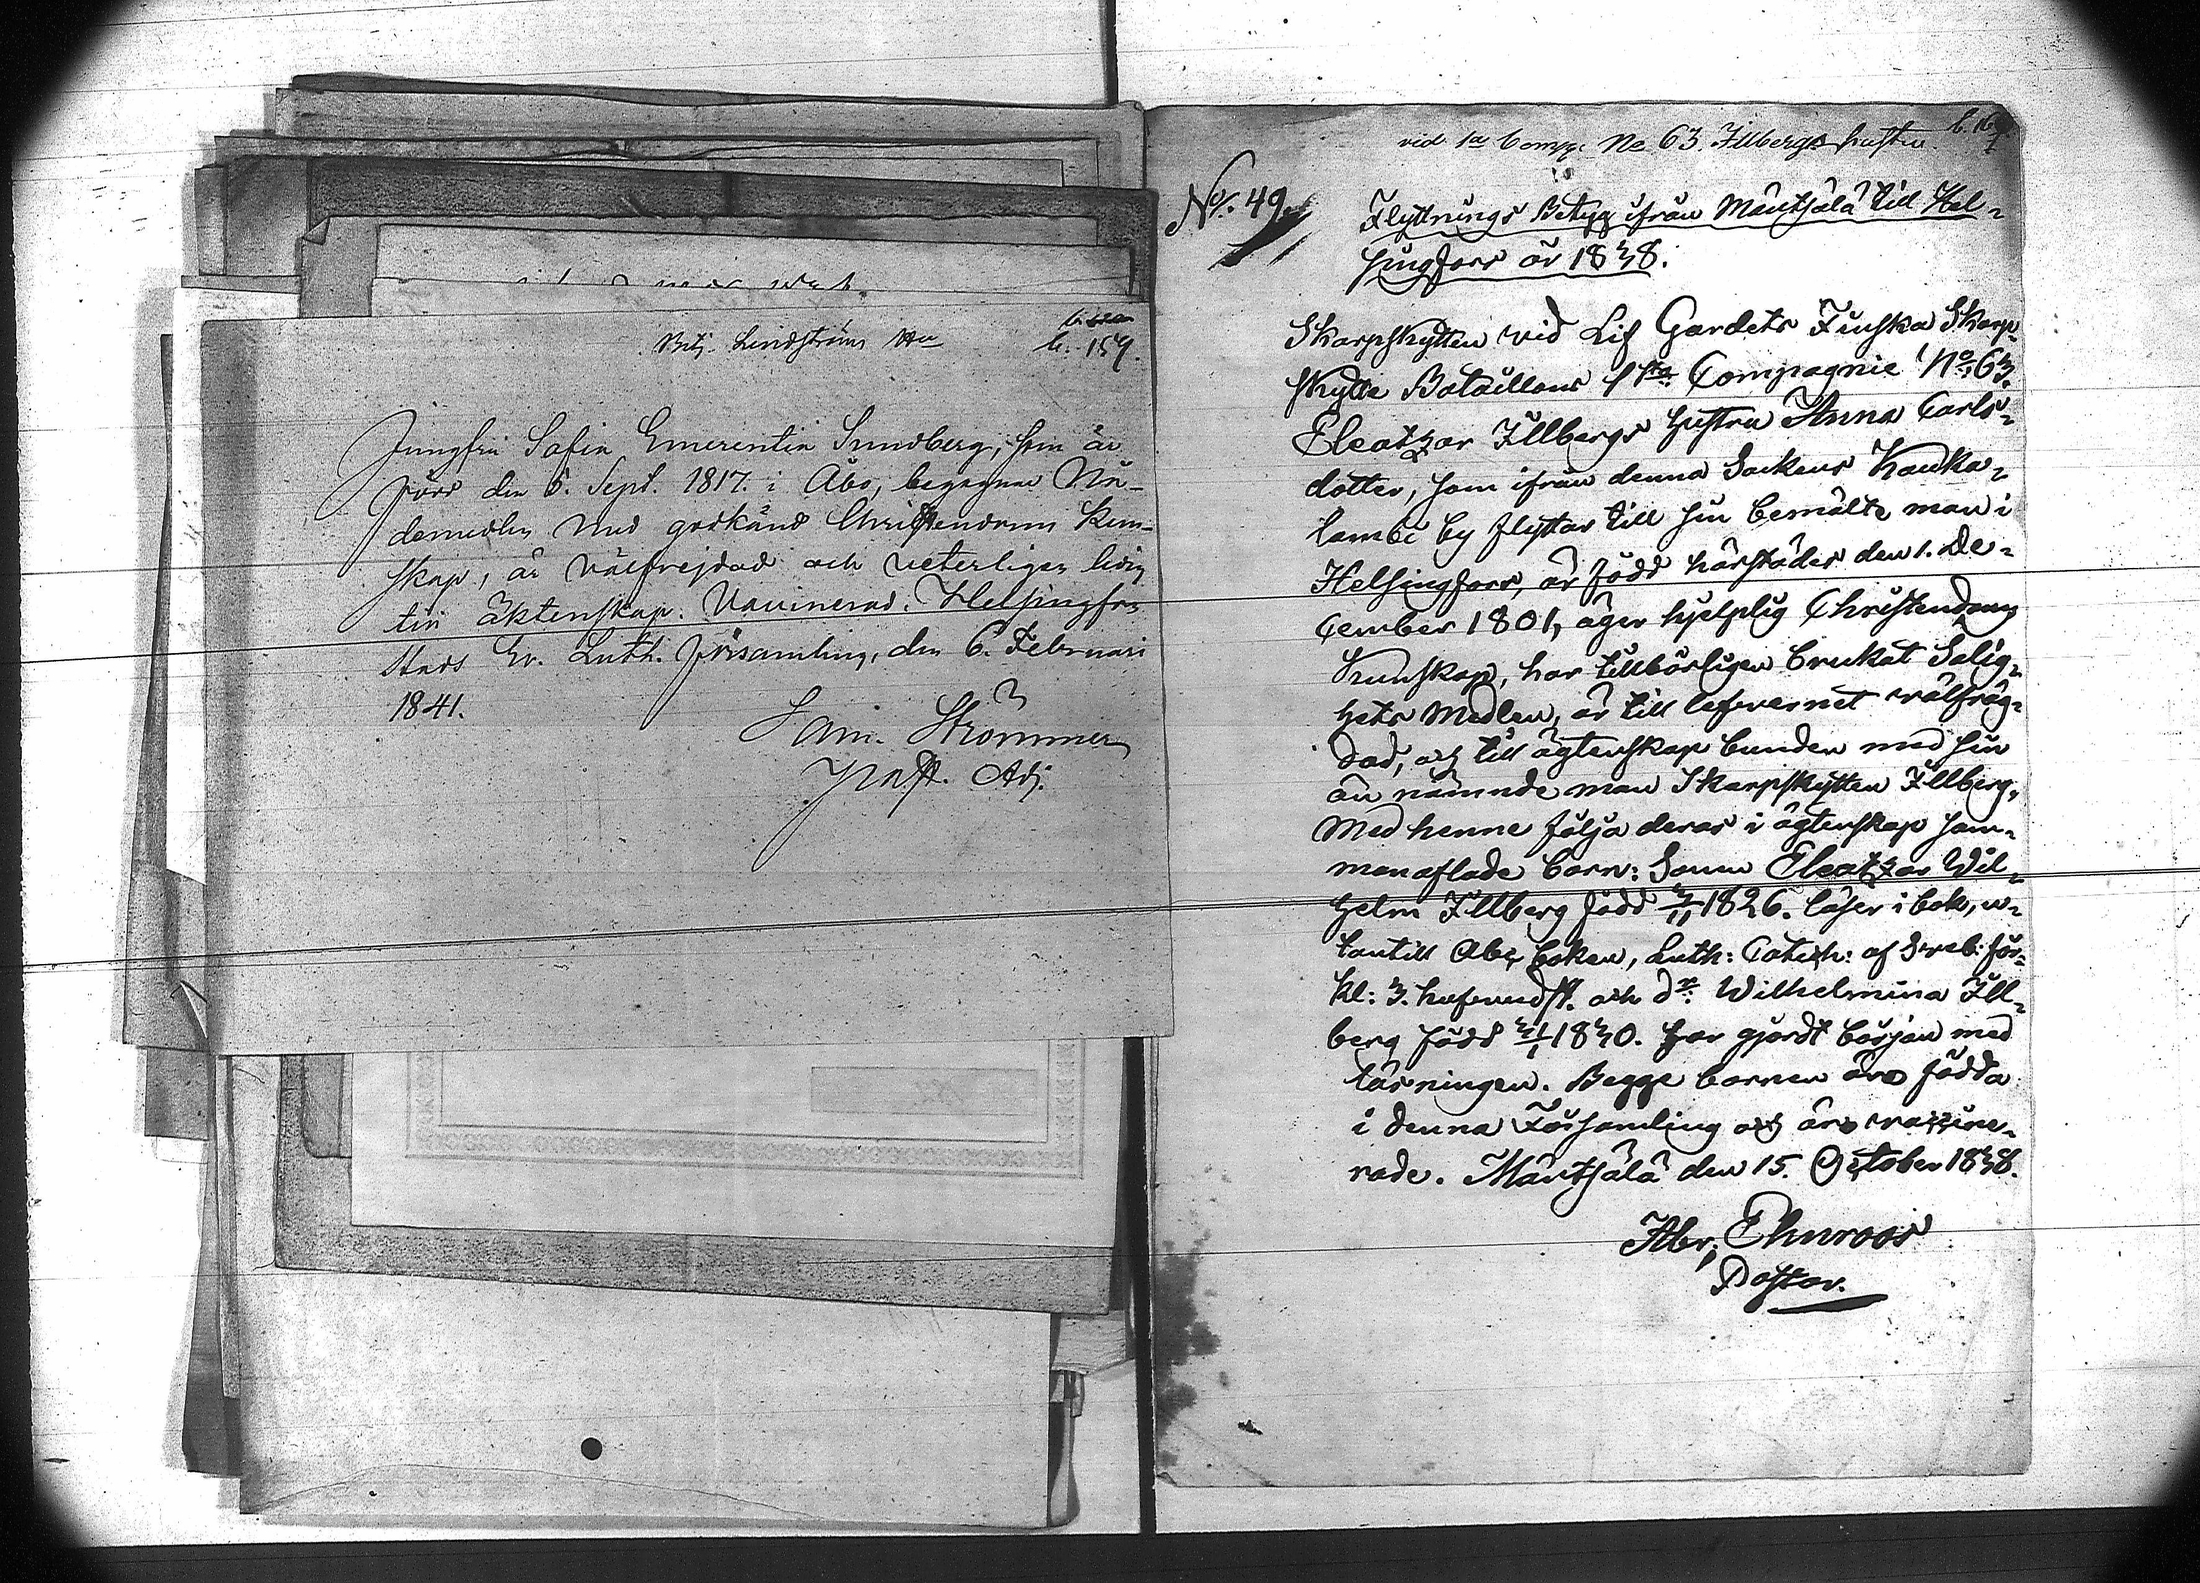 Btj. Lindströms
b. 159.
Jungfru Sofia Emerentia Sundberg, som är
född den 5. Sept. 1817. i Åbo, begagnar Nå-
demedlen med godkänd Christendoms kun-
skap, är välfrejdad och veterligen ledig
till äktenskap. Vaccinerad. Helsingfors
Stads Ev. Luth. församling, den 6. Februari
1841.
Sam. Strömmer
Past. Adj.
vid 1a Comp. No 63. Illbergs hustru
b. 16
No. 49.
Flyttnings Betyg ifrån Mäntsälä till Hel-
singfors år 1838.
Skarpskytten vid Lif Gardets Finska Skarp-
skytte Bataillons 1sta Compagnie No 63.
Eleatzar Illbergs hustru Anna Carls-
dotter, som ifrån denna Sockens Kauka-
lambi by flyttar till sin bemälte man i
Helsingfors, är född härstädes den 1. De-
cember 1801, äger hjelplig Christendoms
Kunskap, har tillbörligen brukat Salig-
hets Medlen, är till lefvernet välfräg-
dad, och till ägtenskap bunden med sin
än nämnde man Skarpskytten Illberg.
Med henne följa deras i ägtenskap sam-
manaflade barn: Sonen Eleatzar Wil-
helm Illberg född 3/11 1826. läser i bok, u-
tantill Abc boken, Luth: Catech: af Sveb: för-
kl: 3. hufvudst. och dr: Wilhelmina Ill-
berg född 31/1 1830. har gjordt början med
läsningen. Begge barnen äro födda
i denna Församling och äro vaccine-
rade. Mäntsälä den 15. October 1838.
Abr, Ehnroos
Pastor.